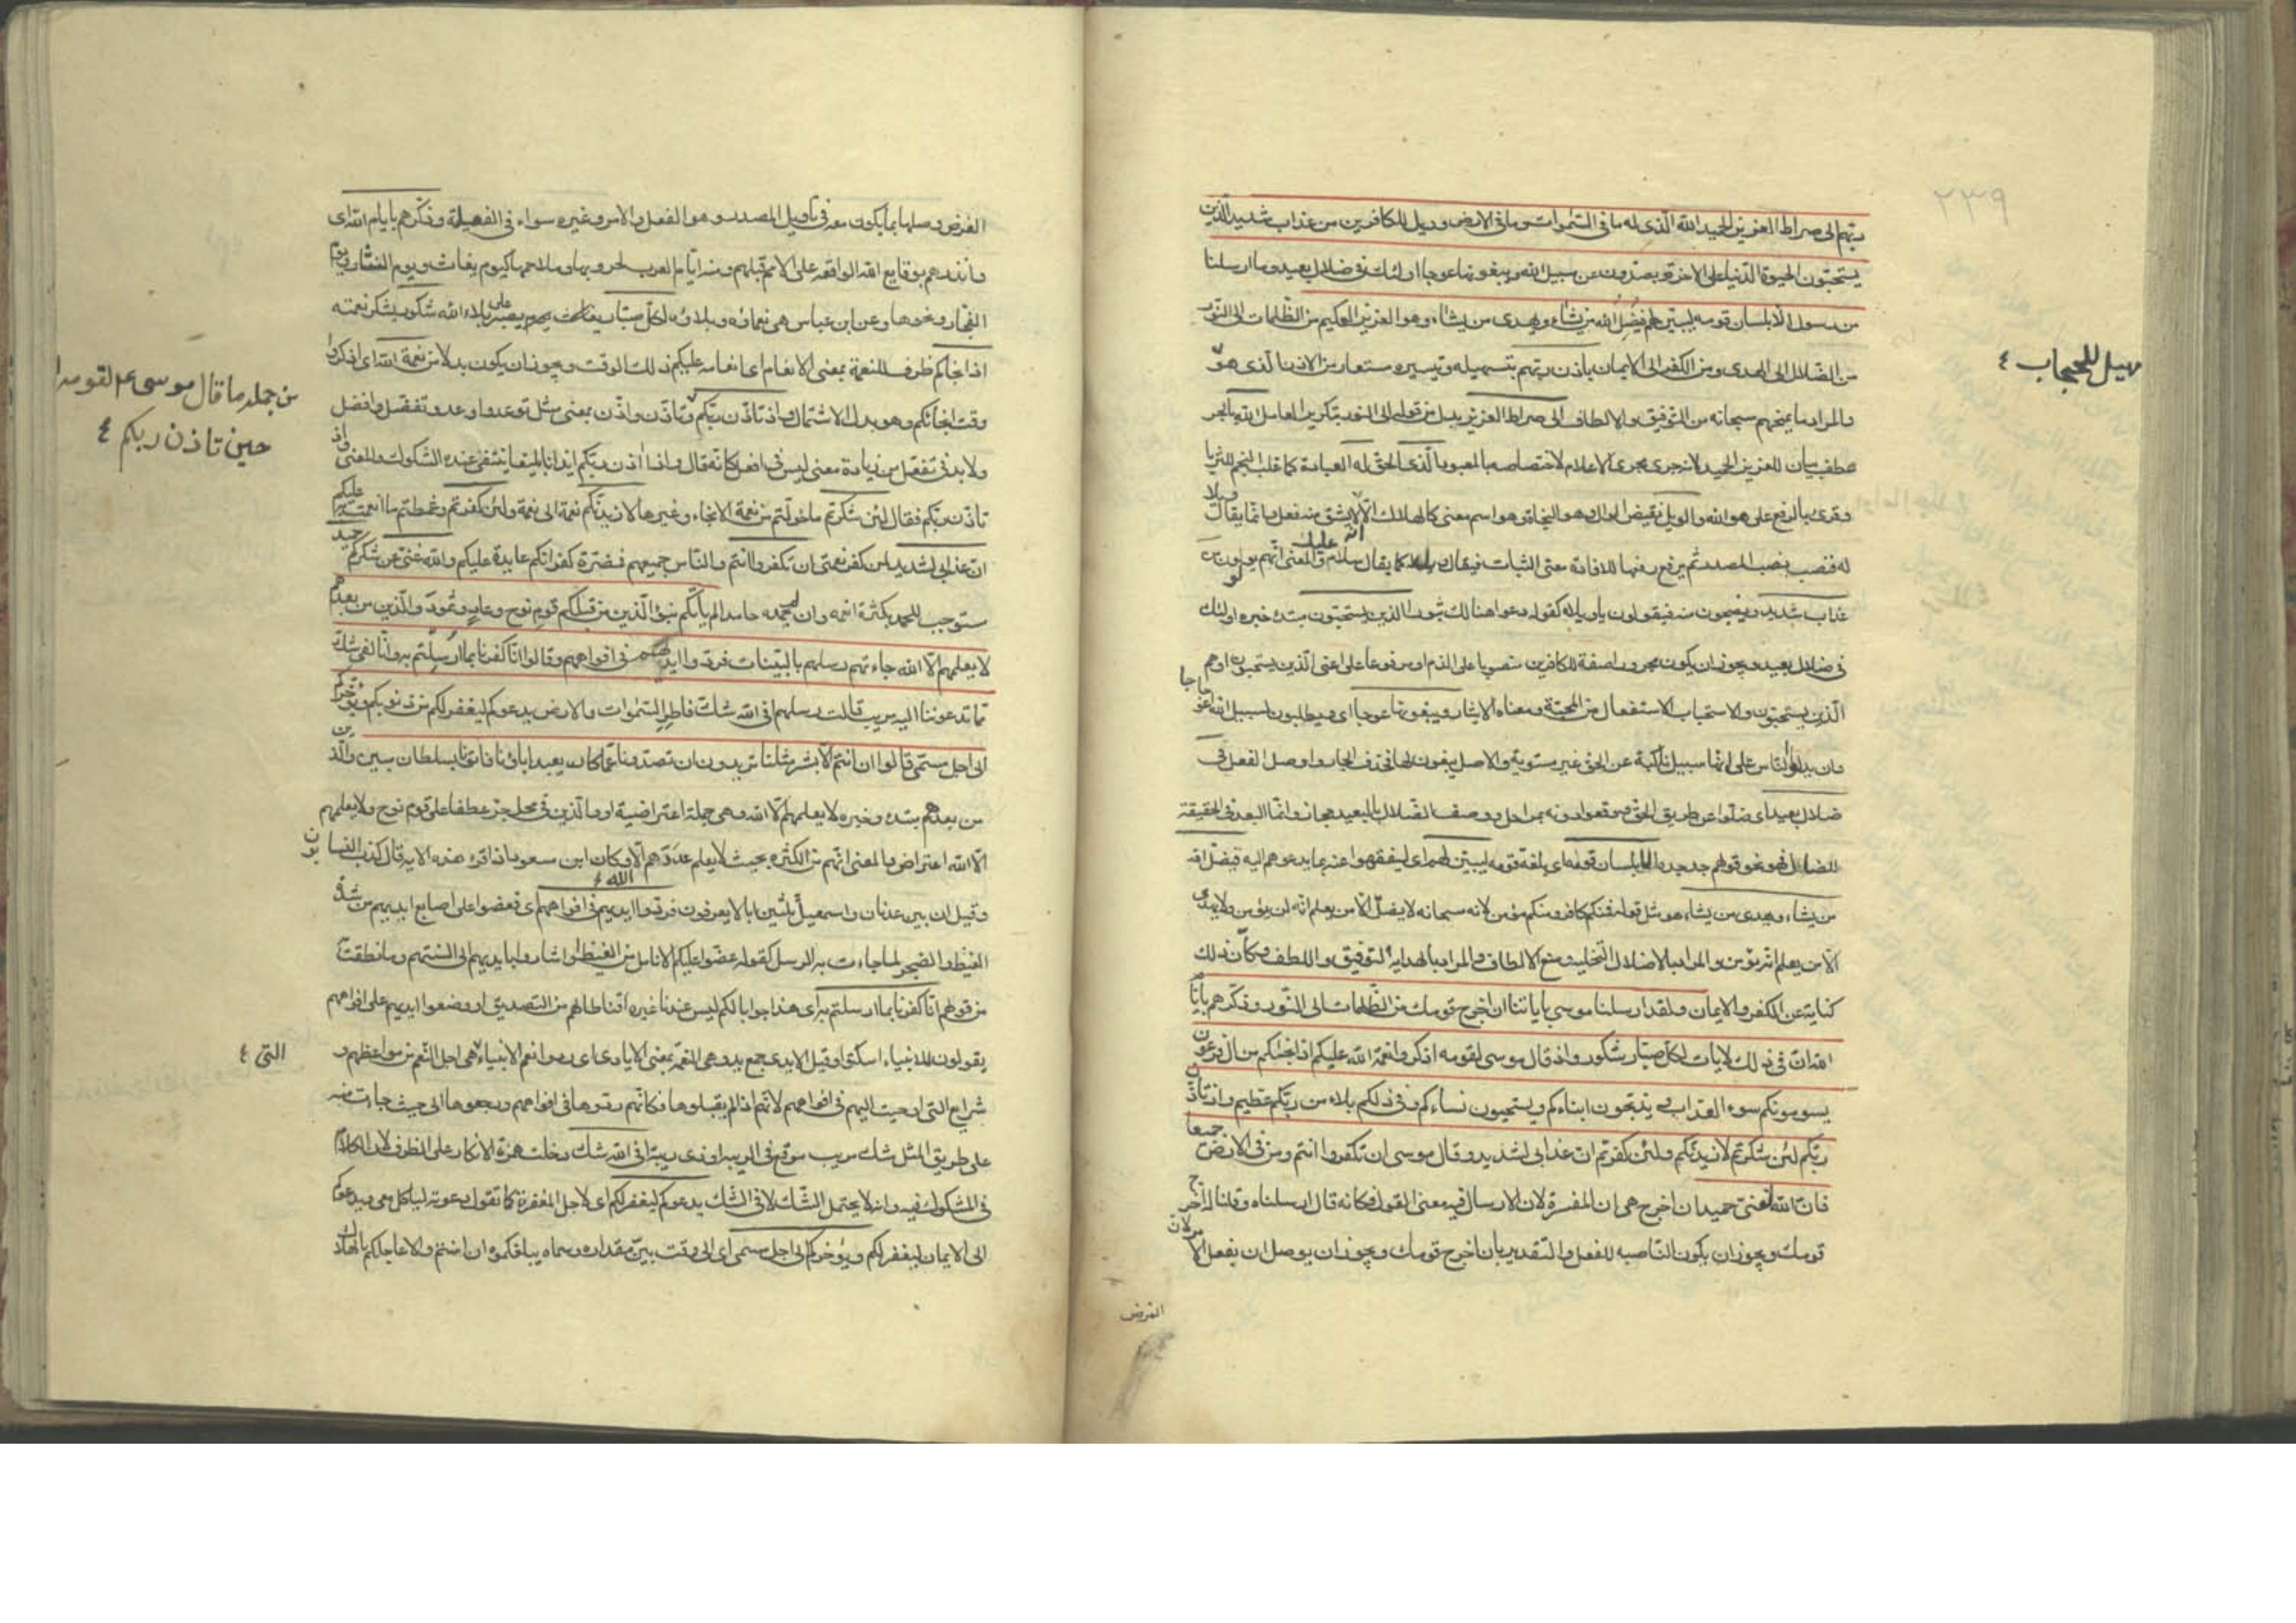 ٢٣٩
ربهم الى صراط العزيز الحميد الله الذى له ما فى السموات وما فى الارض وويل للكافرين من عذاب شديد الذين
يستحبون الحيوة الدنيا على الاخرة ويصدون عن سبيل الله ويبغونها عوجا اولئك فى ضلال بعيد وما ارسلنا
من رسول الا بلسان قومه ليبين لهم فيضل الله من يشاء ويهدى من يشاء وهو العزيز الحكيم من الظلمات الى النور
من الضلال الى الهدى ومن الكفر الى الايمان باذن ربهم بتسهيله وتيسيره مستعار من الاذن الذى هو
تسهيل للحجاب ٤
والمراد ما يمنحهم سبحانه من التوفيق والالطاف الى صراط العزيز بدل من قوله الى النور بتكرير العامل الله بالجر
عطف بيان للعزيز الحميد لانه جرى مجرى الاعلام لاختصاصه بالمعبود الذى الحق له العبادة كما غلب النجم للثريا
وقرئ بالرفع على هو الله والويل نقيض الوال وهو النجاة وهو اسم معنى كالهلاك الا انه لا يشتق منه فعل انما يقال ويلا
له فنصب نصب المصدر ثم يرفع رفعها للافادة معنى الثبات فيقال ويل له كما يقال سلام عليك والمعنى انهم يولولون من
عذاب شديد ويضجون منه فيقولون ياويلاه كقوله دعوا هنالك ثبورا الذين يستحبون مبتدء خبره اولئك
فى ضلال بعيد ويجوز ان يكون مجرورا صفة للكافرين منصوبا على الذم او مرفوعا على اعنى الذين يستحبون او هم
الذين يستحبون والاستحباب الاستفعال من المحبة ومعناه الايثار ويبغونها عوجا اى ويطلبون لسبيل الله اعوجاجا
وان يدلوا الناس على انها سبيل ناكبة عن الحق غير مستوية والاصل يبغون لها فحذف الجار واوصل الفعل فى
ضلال بعيد اى ضلوا عن طريق الحق ووقعوا دونه بمراحل ووصف الضلال بالبعيد مجاز وانما البعد فى الحقيقة
للضال فهو نحو قولهم جد جده الا بلسان قومه اى بلغة قومه ليبين لهم اى ليفقهوا عنه ما يدعوهم اليه فيضل الله
من يشاء ويهدى من يشاء هو مثل قوله فمنكم كافر ومنكم مؤمن لانه سبحانه لا يضل الا من يعلم انه لن يؤمن ولا يهدى
الا من يعلم انه يؤمن والمراد بالاضلال التخلية ومنع الالطاف والمراد بالهداية التوفيق واللطف وكان ذلك
كناية عن الكفر والايمان ولقد ارسلنا موسى باياتنا ان اخرج قومك من الظلمات الى النور وذكرهم بايام
الله ان فى ذلك لايات لكل صبار شكور واذ قال موسى لقومه اذكروا نعمة الله عليكم اذ انجيكم من ال فرعون
يسومونكم سوء العذاب ويذبحون ابناءكم ويستحيون نساءكم وفى ذلكم بلاء من ربكم عظيم واذ تاذن
ربكم لئن شكرتم لازيدنكم ولئن كفرتم ان عذابى لشديد وقال موسى ان تكفروا انتم ومن فى الارض جميعا
فان الله لغنى حميد ان اخرج هى ان المفسرة لان الارسال فيه معنى القول فكانه قال ارسلناه وقلنا له اخرج
قومك ويجوز ان يكون الناصبه للفعل والتقدير بان اخرج قومك ويجوز ان يوصل ان بفعل الامر لان
الغرض
الغرض وصلها بما يكون معه فى تاويل المصدر وهو الفعل والامر وغيره سواء فى الفعلية وذكرهم بايام الله اى
وانذرهم بوقايع الله الواقعه على الامم قبلهم ومنه ايام العرب لحروبها وملاحمها كيوم بغاث ويوم النسار ويوم
الفجار ونحوها وعن ابن عباس هى نعماؤه وبلاؤه لكل صبار يصبر على بلاء الله شكور يشكر نعمته
اذ انجاكم ظرف للنعمة بمعنى الانعام اى انعامه عليكم ذلك الوقت ويجوز ان يكون بدلا من نعمة الله اى اذكروا
وقت انجائكم وهو بدل الاشتمال واذ تاذن ربكم وتاذن واذن بمعنى مثل توعد واوعد وتفضل وافضل
من جمله ما قال موسى ع لقومه
حين تاذن ربكم ٤
ولا بد فى تفعل من زيادة معنى ليس فى افعل كانه قال واذ اذن ربكم ايذانا بليغا ينتفى عنده الشكوك والمعنى واذ
تاذن ربكم فقال لئن شكرتم ما خولتم من نعمة الانجاء وغيرها لازيدنكم نعمة الى نعمة ولئن كفرتم وغمطتم ما انعمت عليكم
ان عذابى لشديد لمن كفر نعمتى ان تكفروا انتم والناس جميعهم فمضرة كفرانكم عايدة عليكم والله غنى عن شكركم حميد
مستوجب للحمد بكثرة انعمه وان لم يحمده حامد الم ياتكم نبؤ الذين من قبلكم قوم نوح وعاد وثمود والذين من بعدهم
لا يعلمهم الا الله جاءتهم رسلهم بالبينات فردوا ايديهم فى افواههم وقالوا انا كفرنا بما ارسلتم به وانا لفى شك
مما تدعوننا اليه مريب قالت رسلهم افى الله شك فاطر السموات والارض يدعوكم ليغفر لكم من ذنوبكم ويؤخركم
الى اجل مسمى قالوا ان انتم الا بشر مثلنا تريدون ان تصدونا عما كان يعبد اباؤنا فاتونا بسلطان مبين والذين
من بعدهم مبتدء وخبره لا يعلمهم الا الله وهى جملة اعتراضية او والذين فى محل جر عطفا على قوم نوح ولا يعلمهم
الا الله اعتراض والمعنى انهم من الكثرة بحيث لا يعلم عددهم الا الله وكان ابن مسعود اذا قرء هذه الايه قال كذب النسابون
وقيل ان بين عدنان واسمعيل ثلثين ابا لا يعرفون فردوا ايديهم فى افواههم اى فعضوا على اصابع ايديهم من شدة
الغيظ والضجر لما جاءت به الرسل كقوله عضوا عليكم الانامل من الغيظ او اشاروا بايديهم الى السنتهم وما نطقت
من قولهم انا كفرنا بما ارسلتم به اى هذا جوابا لكم ليس عندنا غيره اقناطا لهم من التصديق او وضعوا ايديهم على افواههم
يقولون للانبياء اسكتوا وقيل الايدى جمع يد وهى النعمة بمعنى الايادى اى ردوا نعم الانبياء التى هى اجل النعم من مواعظهم و
التى ٤
شرايع التى اوحيت اليهم فى افواههم لانهم اذا لم يقبلوها فكانهم ردوها فى افواههم ورجعوها الى حيث جاءت منه
على طريق المثل شك مريب موقع فى الريبه او ذى ريبة افى الله شك دخلت همزة الانكار على الظرف لان الكلام
فى المشكوك فيه وانه لا يحتمل الشك لا فى الشك يدعوكم ليغفر لكم اى لاجل المغفرة كما تقول دعوته لياكل معى ويدعوكم
الى الايمان ليغفر لكم ويؤخركم الى اجل مسمى اى الى وقت بين مقداره وسماه يبلغكموه ان امنتم والا عاجلكم بالهلاك